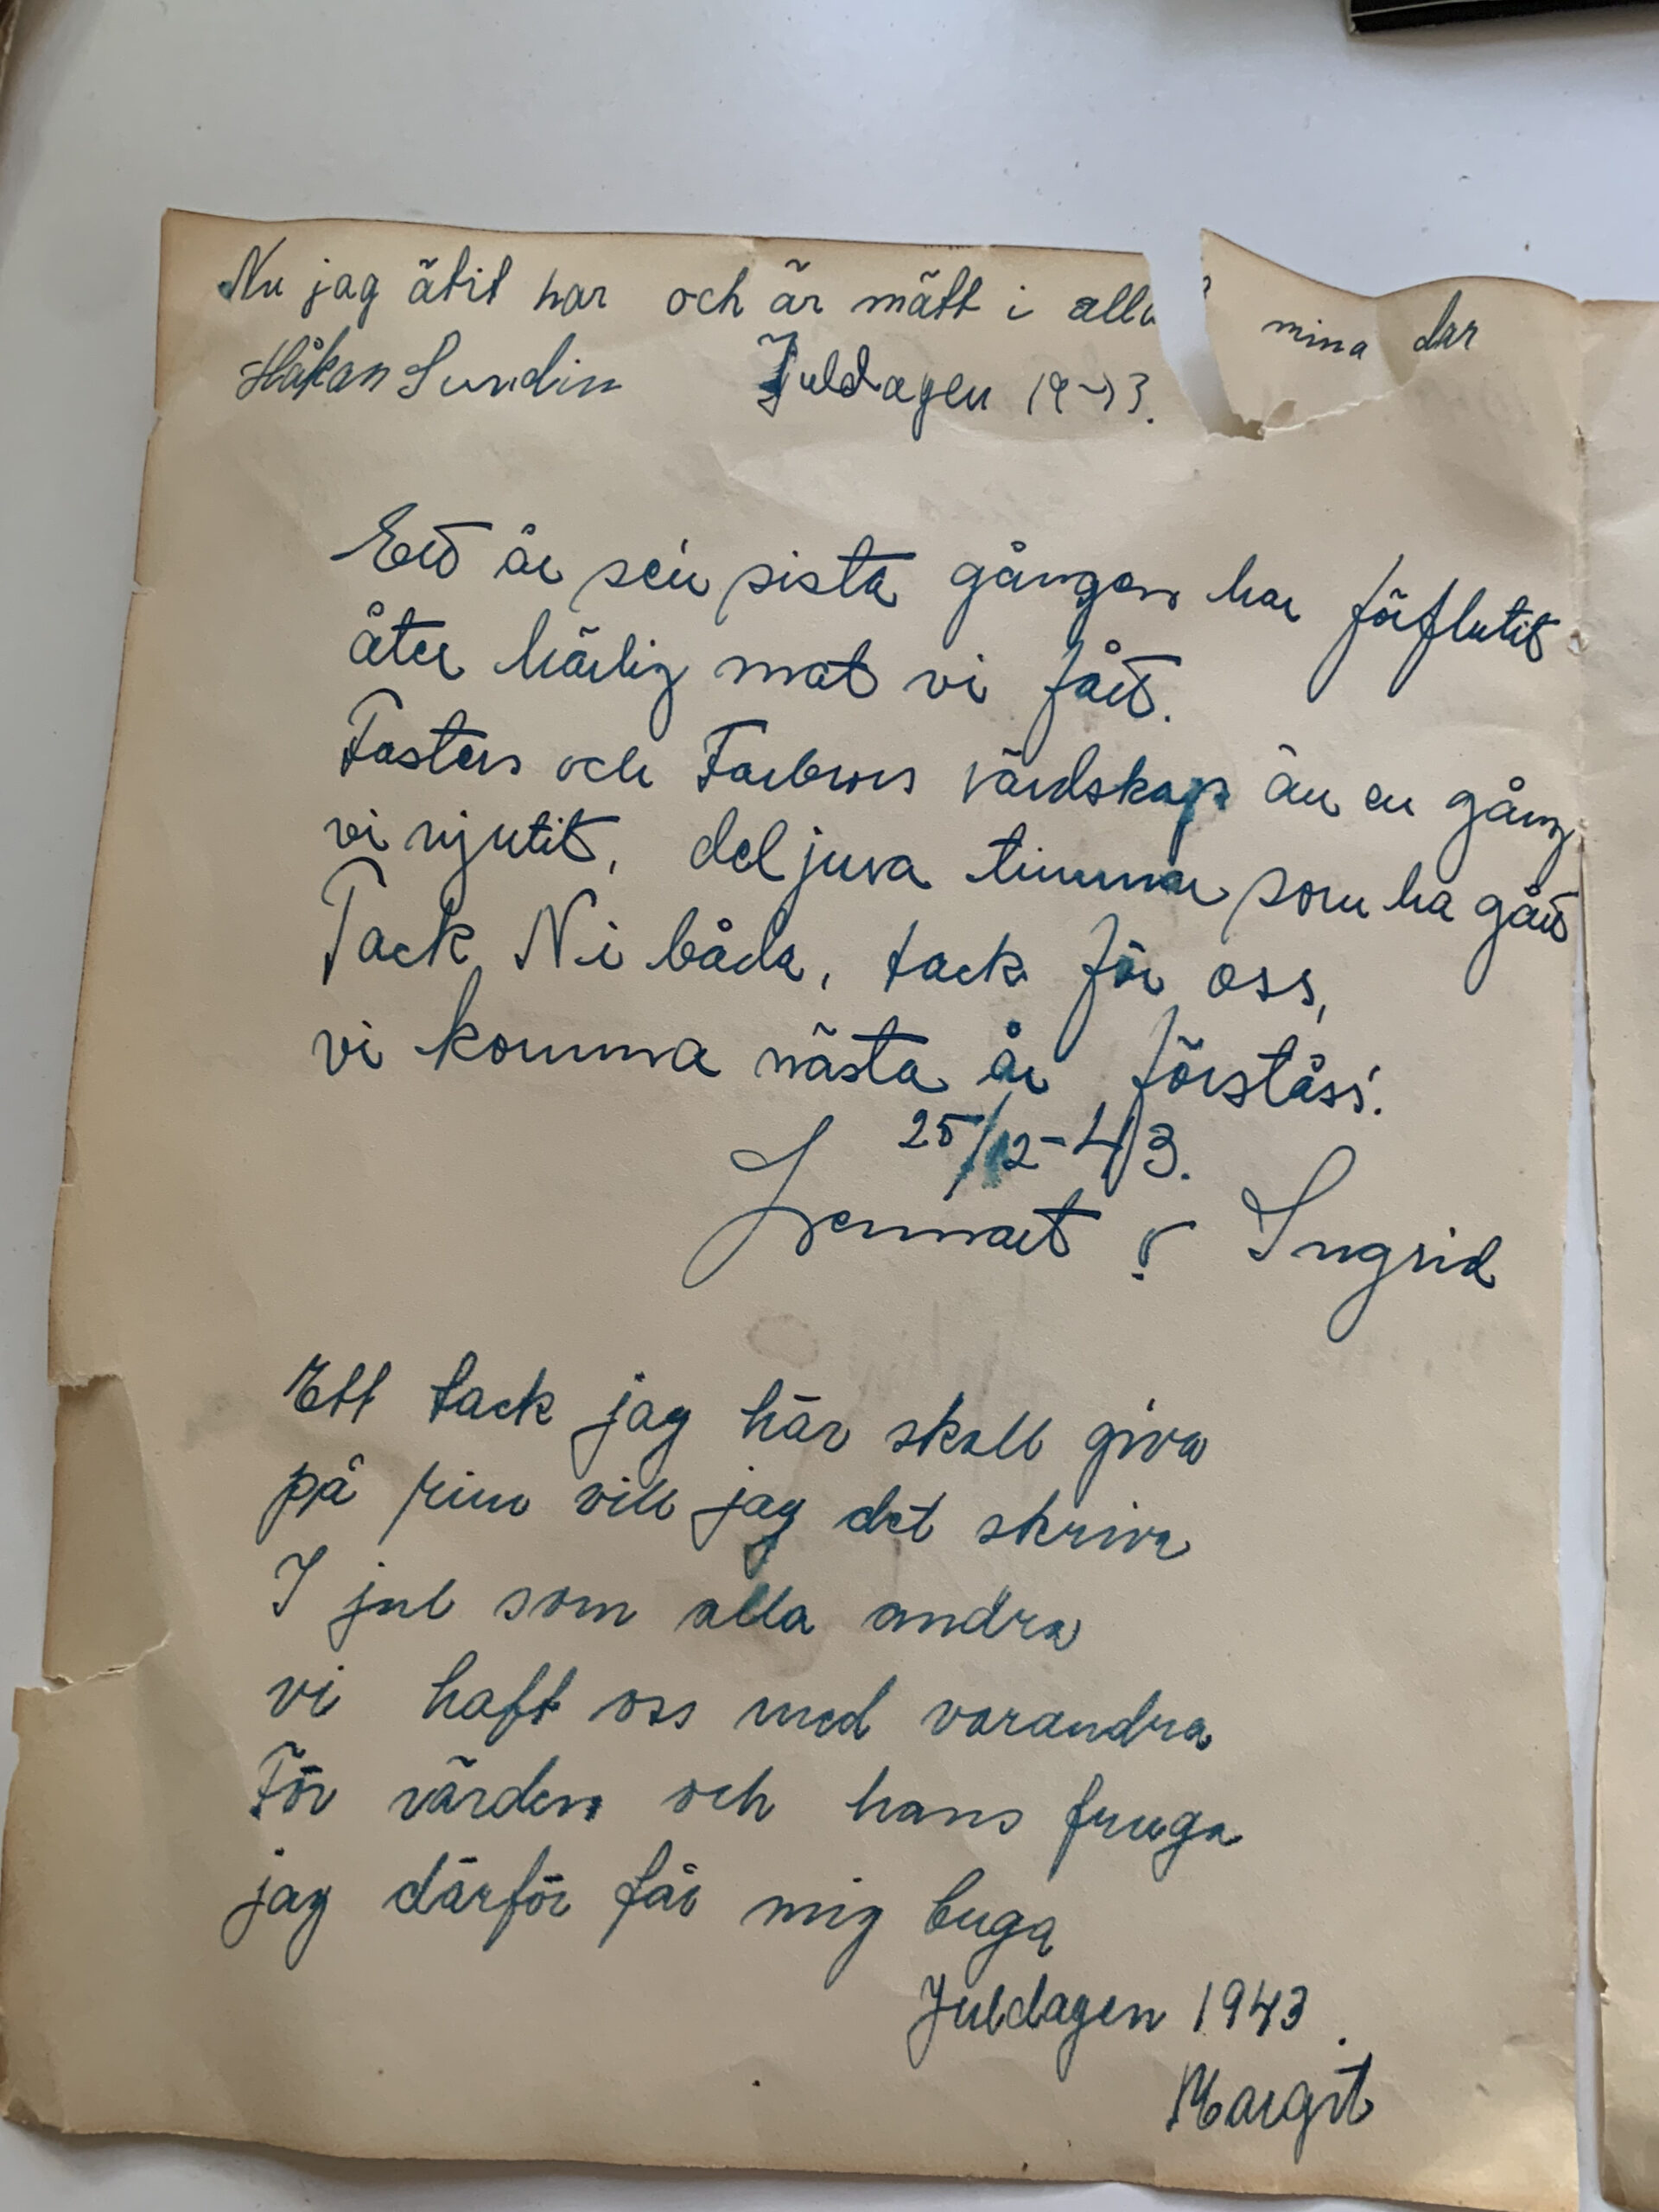 Nu jag ätit har och är mätt i alla mina dar
Håkan Sundin Juldagen 1943.
Ett år se'n sista gången har förflutit
åter härlig mat vi fått.
Fasters och Farbrors värdskap än en gång
vi njutit, del ljuva timmar som ha gått
Tack Ni båda, tack för oss,
vi komma nästa år förståss!
25/12-43.
Lennart & Ingrid
Ett tack jag här skall giva
på rim vill jag det skriva
I jul som alla andra
vi haft oss med varandra
För värden och hans fruga
jag därför får mig buga
Juldagen 1943.
Margit